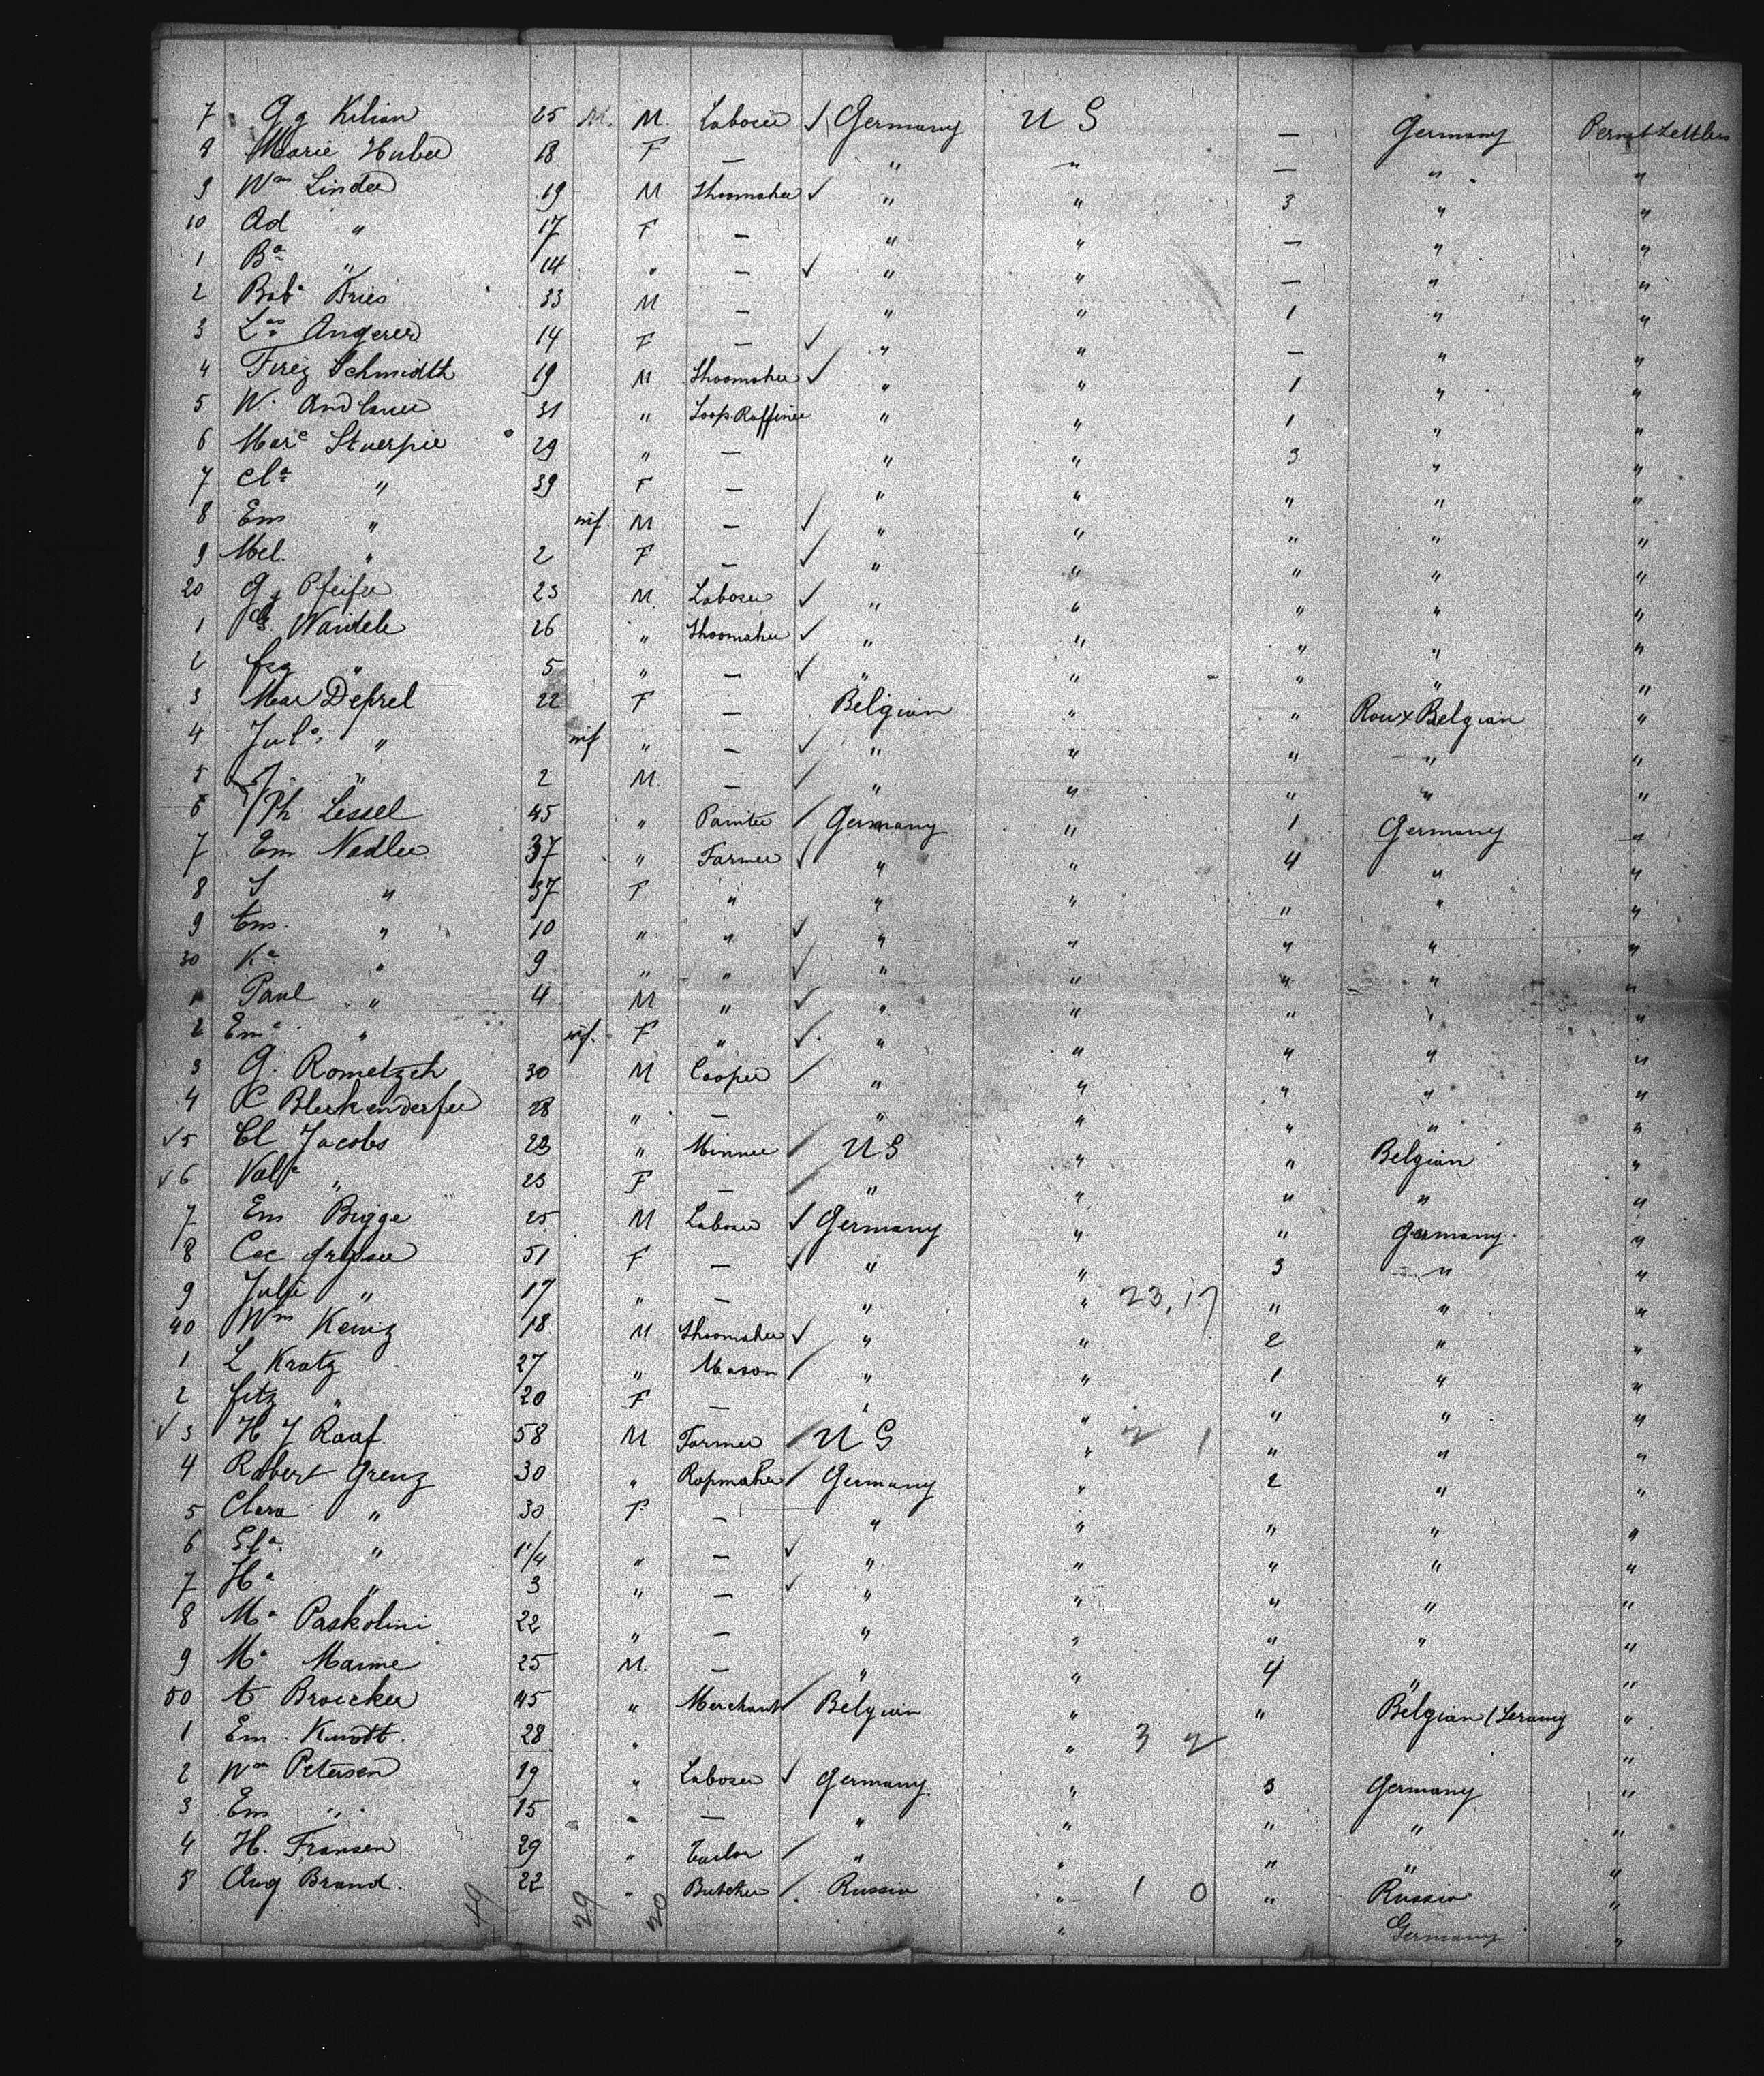 7 Gg Kilian 25 M. M. Laborer ✓ Germany U S — Germany Permt Settlers
8 Marie Huber 18 F — " " — " "
9 Wm Linder 19 M Shoomaker ✓ " " 3 " "
10 Ad " 17 F — " " — " "
1 Ba " 14 " — ✓ " " — " "
2 Baba Bries 33 M — " " 1 " "
3 Angerer 14 F — ✓ " " — " "
4 Schmidth 19 M Shoomaker ✓ " " 1 " "
5 W. Andlauer 31 " Soap Raffiner " " 1 " "
6 Marc Stuerpie 29 " — " " 3 " "
7 Cla " 39 F — " " " " "
8 Em " inf. M — ✓ " " " " "
9 Mel. " 2 F — ✓ " " " " "
20 Gg Pfeifer 23 M. Laborer ✓ " " " " "
1 Waidele 26 " Shoomaker ✓ " " " " "
2 " 5 " — ✓ " " " " "
3 Mar Deprel 22 F — Belgian " " Roux Belgian "
4 Jula " inf " — ✓ " " " " "
5 J. " 2 M. — ✓ " " " " "
6 Ph Lessel 45 " Painter / Germany " 1 Germany "
7 Em Nadler 37 " Farmer ✓ " " 4 " "
8 S " 37 F " " " " " "
9 Em. " 10 " " ✓ " " " " "
30 Ka " 9 " " ✓ " " " " "
1 Paul " 4 M " ✓ " " " " "
2 Ema " inf. F " ✓ " " " " "
3 G. Rometzch 30 M Cooper / " " " " "
4 C Bleikenderfer 28 " — " " " " "
✓5 Cl Jacobs 28 " Minner / U S " " Belgian "
✓6 " 23 F — / " " " " "
7 Em Bigge 25 M Laborer ✓ Germany " " Germany. "
8 Cec 51 F — ✓ " " 3 " "
9 Julie " 17 " — " " 23,17 " " "
40 Wm Keinz 18 M Shoomaker ✓ " " 2 " "
1 L Kratz 27 " Mason / " " 1 " "
2 Fitz " 20 F — " " " " "
✓3 H J Raaf 58 M Farmer / U S " 2 1 " " "
4 Robert Grenz 30 " Ropmaker / Germany " 2 " "
5 Clara " 30 F — " " " " "
6 Ela " 11/4 " — ✓ " " " " "
7 Ha " 3 " — ✓ " " " " "
8 Ma Paskolini 22 " — " " " " "
9 Ma Marine 25 M. — " " 4 " "
50 A Broecker 45 " Merchant / Belgian " " Belgian (Seraing "
1 Em. Knodt. 28 " " 3 2 "
2 Wm Petersen 19 " Laborer ✓ Germany. " 3 Germany "
3 Em " 15 " — " " " " "
4 H. Fransen 29 " Tailor / " " " " "
5 Aug Brand. 22 " Butcher / Russia " 1 0 " Russia "
49 29 20 " Germany "